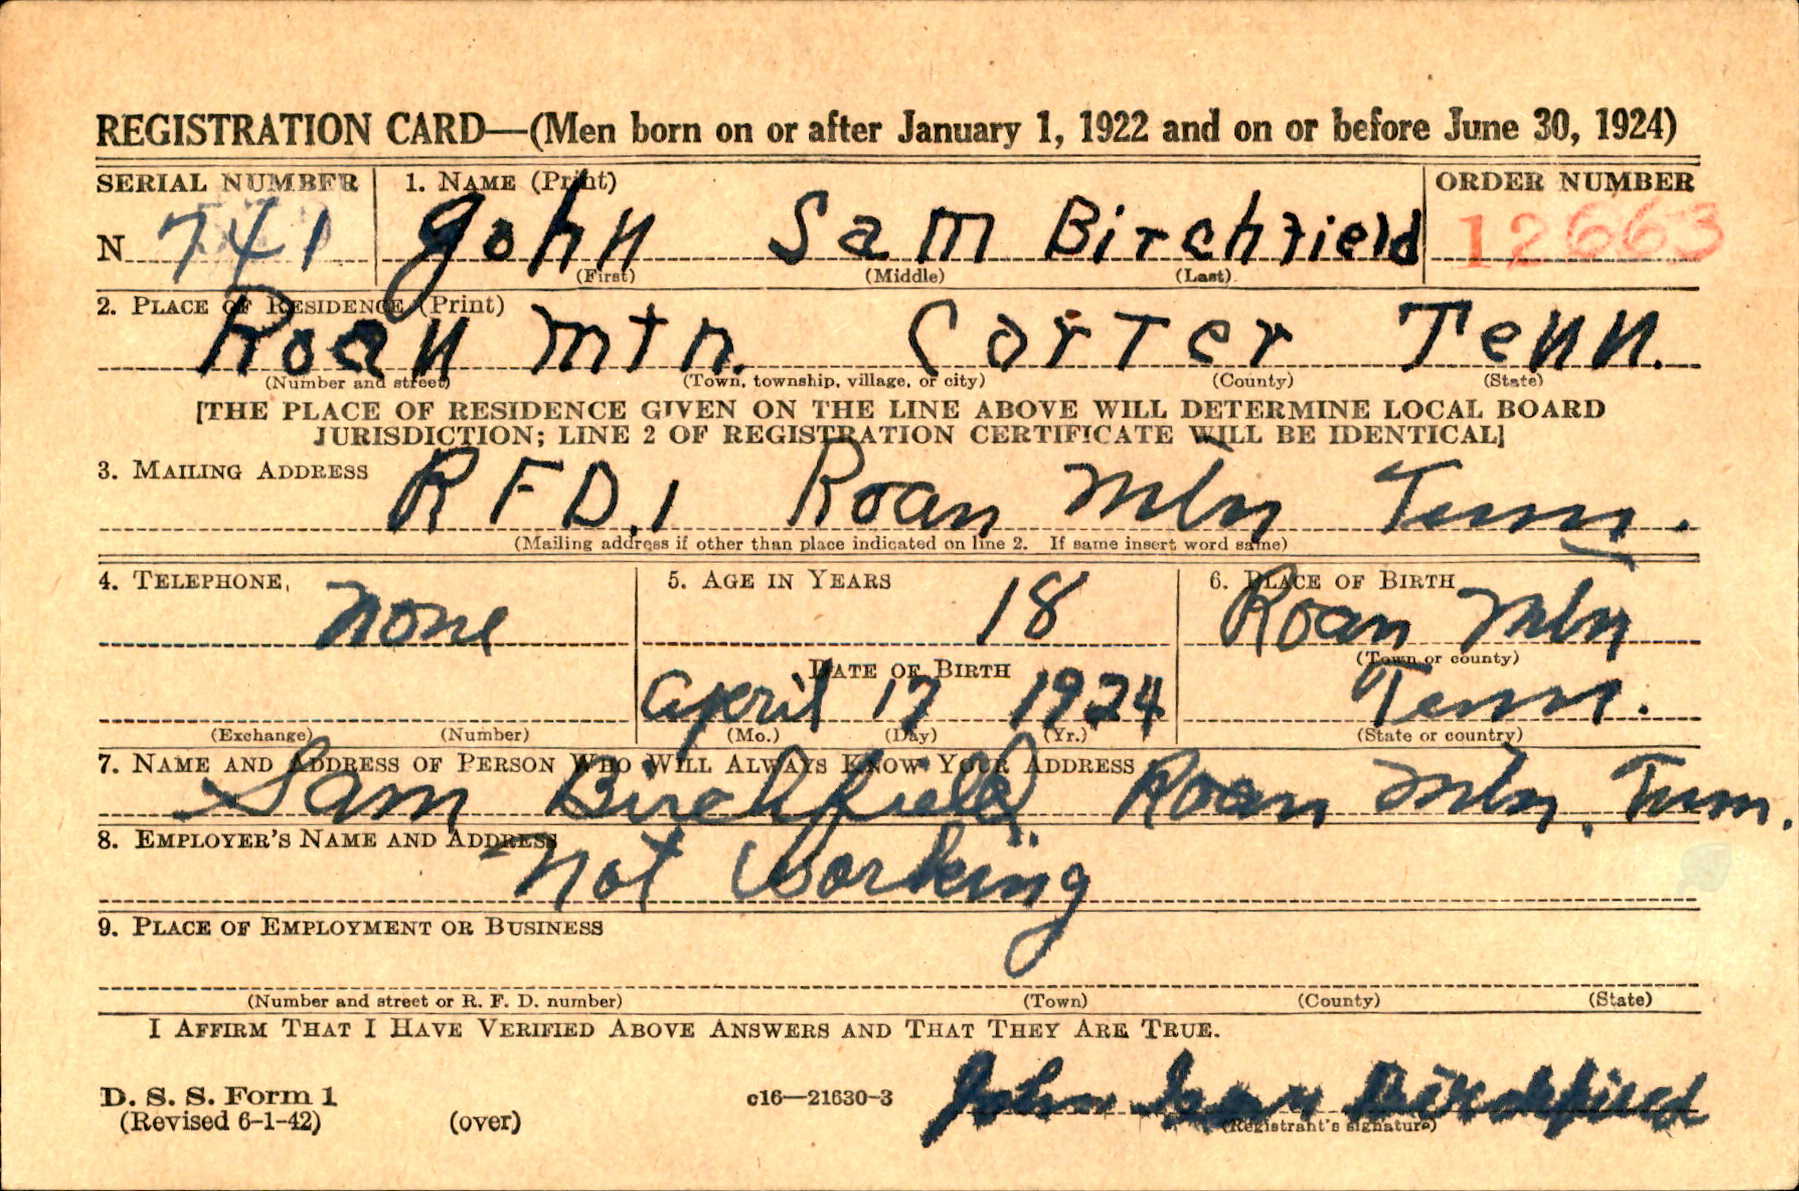 REGISTRATION CARD—(Men born on or after January 1, 1922 and on or before June 30, 1924)
SERIAL NUMBER 1. NAME (Print) ORDER NUMBER
N 741 John Sam Birchfield 12663
(First) (Middle) (Last)
2. PLACE OF RESIDENCE (Print)
Roan mtn. Carter Tenn.
(Number and street) (Town, township, village, or city) (County) (State)
[THE PLACE OF RESIDENCE GIVEN ON THE LINE ABOVE WILL DETERMINE LOCAL BOARD
JURISDICTION; LINE 2 OF REGISTRATION CERTIFICATE WILL BE IDENTICAL]
3. MAILING ADDRESS RFD.1 Roan Mtn Tenn.
(Mailing address if other than place indicated on line 2. If same insert word same)
4. TELEPHONE 5. AGE IN YEARS 6. PLACE OF BIRTH
none 18 Roan Mtn
(Town or county)
DATE OF BIRTH
April 17 1924 Tenn.
(Exchange) (Number) (Mo.) (Day) (Yr.) (State or country)
7. NAME AND ADDRESS OF PERSON WHO WILL ALWAYS KNOW YOUR ADDRESS
Sam Birchfield Roan Mtn. Tenn.
8. EMPLOYER'S NAME AND ADDRESS
not working
9. PLACE OF EMPLOYMENT OR BUSINESS
(Number and street or R. F. D. number) (Town) (County) (State)
I AFFIRM THAT I HAVE VERIFIED ABOVE ANSWERS AND THAT THEY ARE TRUE.
D. S. S. Form 1 c16—21630-3 John Sam Birchfield
(Revised 6-1-42) (over) (Registrant's signature)